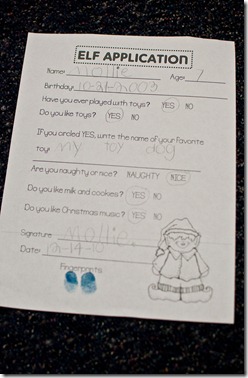 ELF APPLICATION
Name: Mollie Age: 7
Birthday: 10-31-2003
Have you ever played with toys? YES NO
Do you like toys? YES NO
If you circled YES, write the name of your favorite
toy: my toy dog
Are you naughty or nice? NAUGHTY NICE
Do you like milk and cookies? YES NO
Do you like Christmas music? YES NO
Signature: Mollie.
Date: 12-14-10
Fingerprints